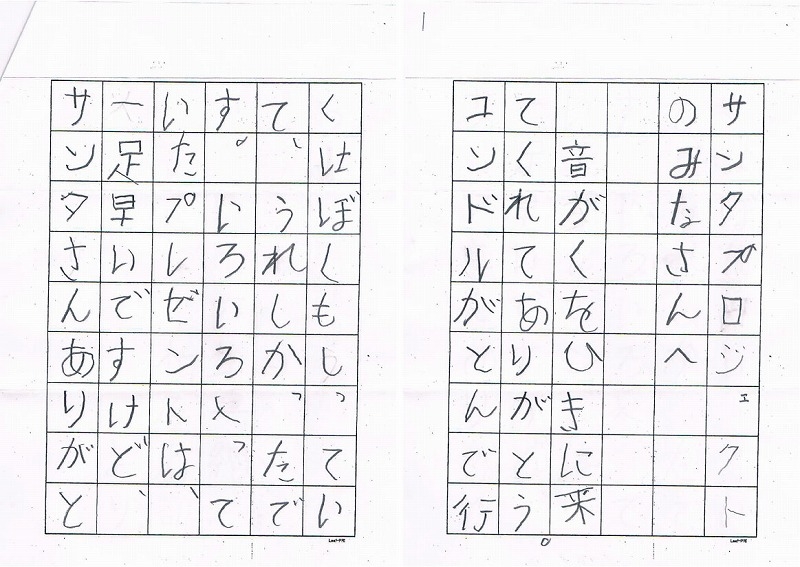 サンタプロジェクト
のみなさんへ
音がくをひきに来
てくれてありがとう。
コンドルがとんで行
くはぼくもしってい
て、うれしかったで
す。いろいろ入って
いたプレゼントは、
一足早いですけど、
サンタさんありがと